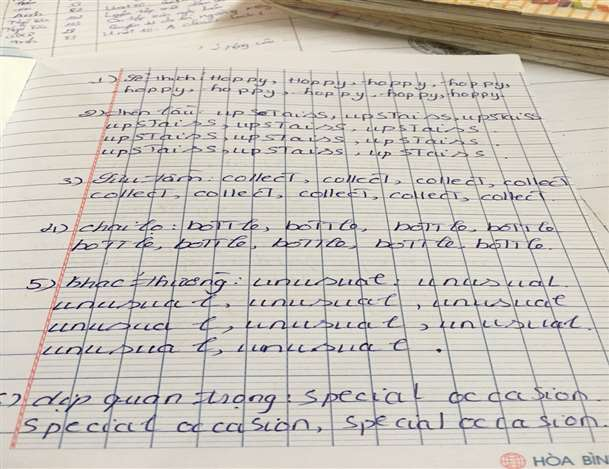 1) Sở thích: Happy, Happy, happy, happy,
happy, happy, happy, happy, happy.
2) Trên lầu: upstairs, upstairs, upstairs
upstairs, upstairs, upstairs.
upstairs, upstairs, upstairs.
upstairs, upstairs, upstairs.
3) Sưu tầm: collect, collect, collect, collect
collect, collect, collect, collect, collect.
4) chai lo: bottle, bottle, bottle, bottle
bottle, bottle, bottle, bottle, bottle.
5) khác thường: unusual, unusual.
unusual, unusual, unusual
unusual, unusual, unusual.
unusual, unusual.
dịp quan trọng: special occasion.
special occasion, special occasion.
HÒA BÌN